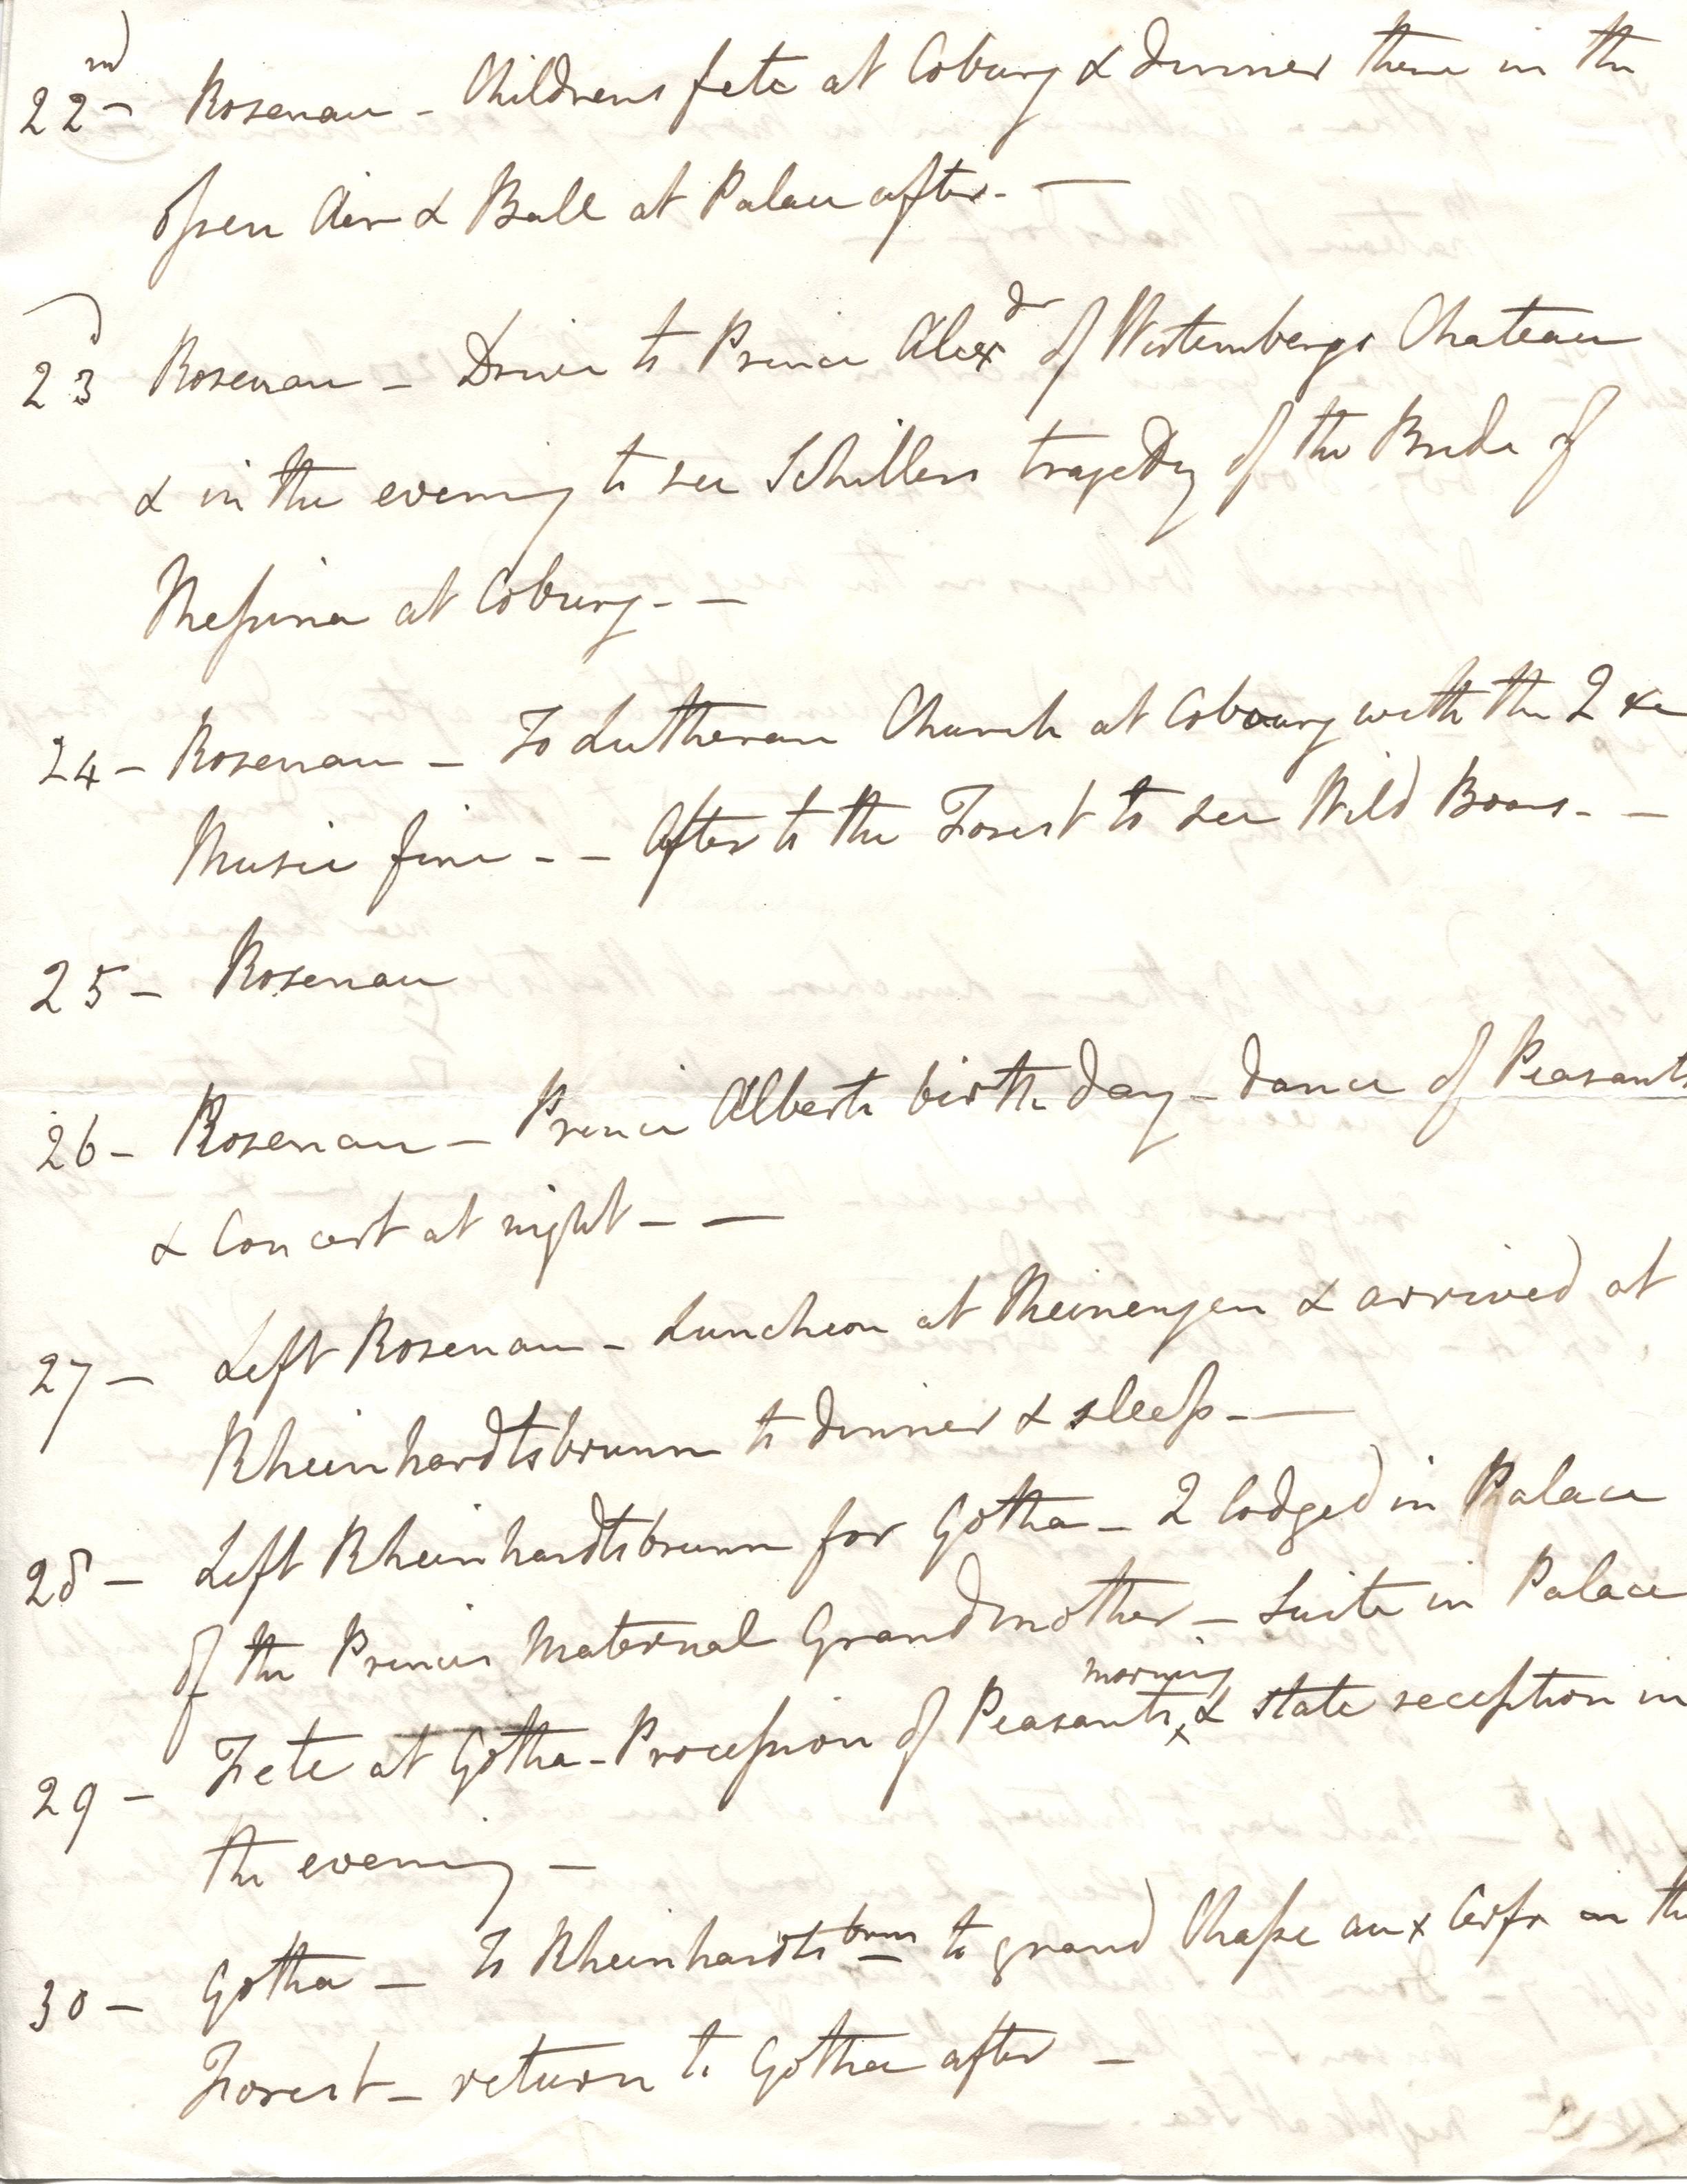 22nd Rosenau - Childrens fete at Coburg & dinner there in the
open Air & Ball at Palace after. —
23 Rosenau - Drive to Prince Alexdr of Wirtembergs Chateau
& in the evening to see Schillers tragedy of the Bride of
Meſsina at Coburg. —
24 - Rosenau - To Lutheran Church at Cobourg with the 2 &c
Music fine - - After to the Forest to see Wild Boars. -
25 - Rosenau
26 - Rosenau - Prince Alberts birth day - dance of Peasants
& Concert at night - —
27 - Left Rosenau - Luncheon at Meinengen & arrived at
Rheinhardtsbrunn to dinner & sleep. —
28 - Left Rheinhardtsbrunn for Gotha - 2 lodged in Palace
of the Princes Maternal Grandmother - Suite in Palace
29 - Fete at Gotha - Proceſsion of Peasants morning & State reception in
the evening -
30 - Gotha - To Rheinhardtsbrun to grand Chaſse aux Cerfs in the
Forest - return to Gotha after -